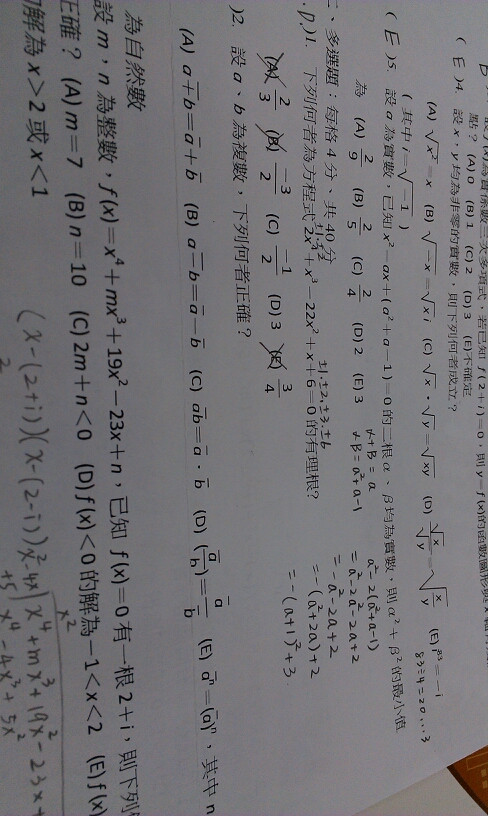 設 f(x)為實係數三次多項式，若已知 f(2+i)=0，則 y=f(x)的函數圖形與 x
點？ (A) 0 (B) 1 (C) 2 (D) 3 (E)不確定
( E )4. 設 x，y 均為非零的實數，則下列何者成立？
(A) √x²=x (B) √-x=√x i (C) √x‧√y=√xy (D) √x/√y=√(x/y) (E) i⁸³=-i
83÷4=20...3
(其中 i=√-1)
( E )5. 設 a 為實數，已知 x²-ax+(a²+a-1)=0 的二根 α、β 均為實數，則 α²+β² 的最小值
為 (A) 2/9 (B) 2/5 (C) 2/4 (D) 2 (E) 3
α+β=a
αβ=a²+a-1
a²-2(a²+a-1)
=a²-2a²-2a+2
=-a²-2a+2
=-(a²+2a)+2
=-(a+1)²+3
、多選題：每格 4 分、共 40 分
)1. 下列何者為方程式 2x⁴+x³-22x²+x+6=0 的有理根?
±1,±2
±1,±2,±3,±6
(A) 2/3 (B) -3/2 (C) -1/2 (D) 3 (E) 3/4
)2. 設 a、b 為複數，下列何者正確？
(A) a̅+̅b̅=a̅+b̅ (B) a̅-̅b̅=a̅-b̅ (C) a̅b̅=a̅‧b̅ (D) (a/b)̅=a̅/b̅ (E) a̅ⁿ=(a̅)ⁿ，其中 n
為自然數
設 m，n 為整數，f(x)=x⁴+mx³+19x²-23x+n，已知 f(x)=0 有一根 2+i，則下列
正確？ (A) m=7 (B) n=10 (C) 2m+n<0 (D) f(x)<0 的解為-1<x<2 (E) f(x)
的解為 x>2 或 x<1
(x-(2+i))(x-(2-i))
x²
x²-4x+5
x⁴+mx³+19x²-23x+
x⁴-4x³+5x²